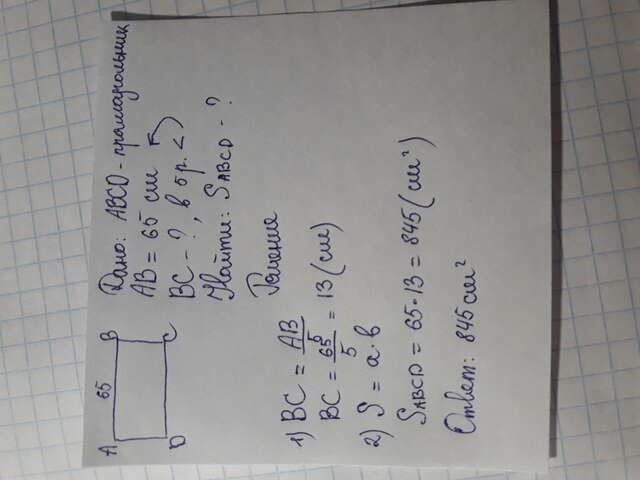 A 65 B
D C
Дано: ABCD - прямоугольник
AB = 65 см
BC - ?, в 5 р. <
Найти: SABCD - ?
Решение
1) BC = AB/5
BC = 65/5 = 13 (см)
2) S = a · b
SABCD = 65 · 13 = 845 (см²)
Ответ: 845 см²